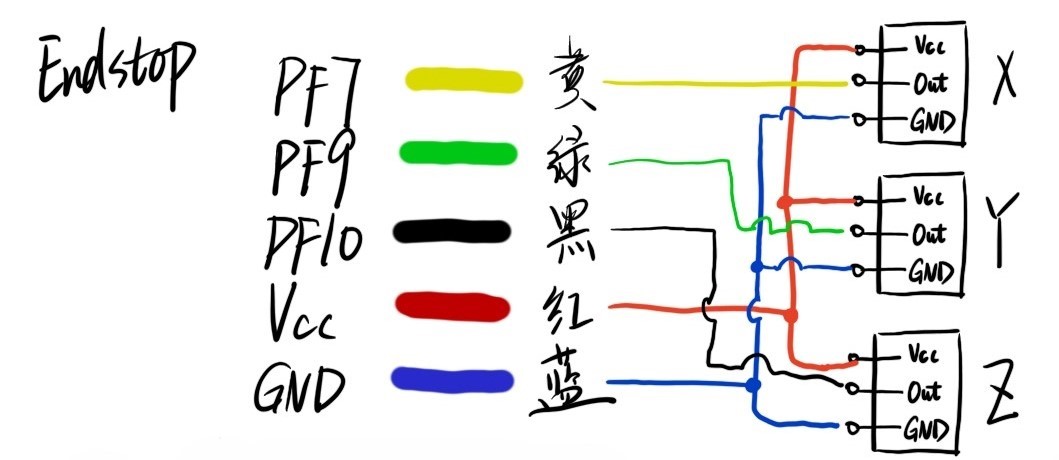 Endstop
PF7 黄
PF9 绿
PF10 黑
Vcc 红
GND 蓝
Vcc
Out
GND
X
Vcc
Out
GND
Y
Vcc
Out
GND
Z